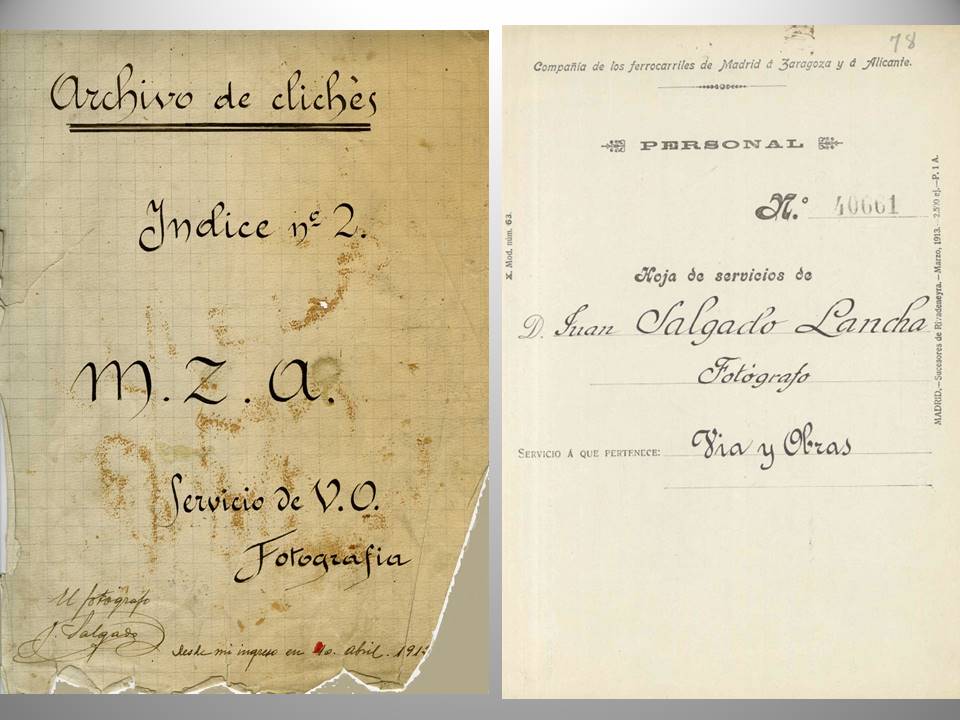 Archivo de clichès
Indice nº 2.
M. Z. A.
Servicio de V. O.
Fotografia
El fotógrafo
J. Salgado
Desde mi ingreso en abril. 191
78
Compañia de los ferrocarriles de Madrid á Zaragoza y á Alicante.
PERSONAL
N.º 40661
Hoja de servicios de
D. Juan Salgado Lancha
Fotógrafo
SERVICIO Á QUE PERTENECE: Via y Obras
X. Mod. núm. 63.
MADRID.—Sucesores de Rivadeneyra.—Marzo, 1913.—2.500 ej.—P. 1 A.